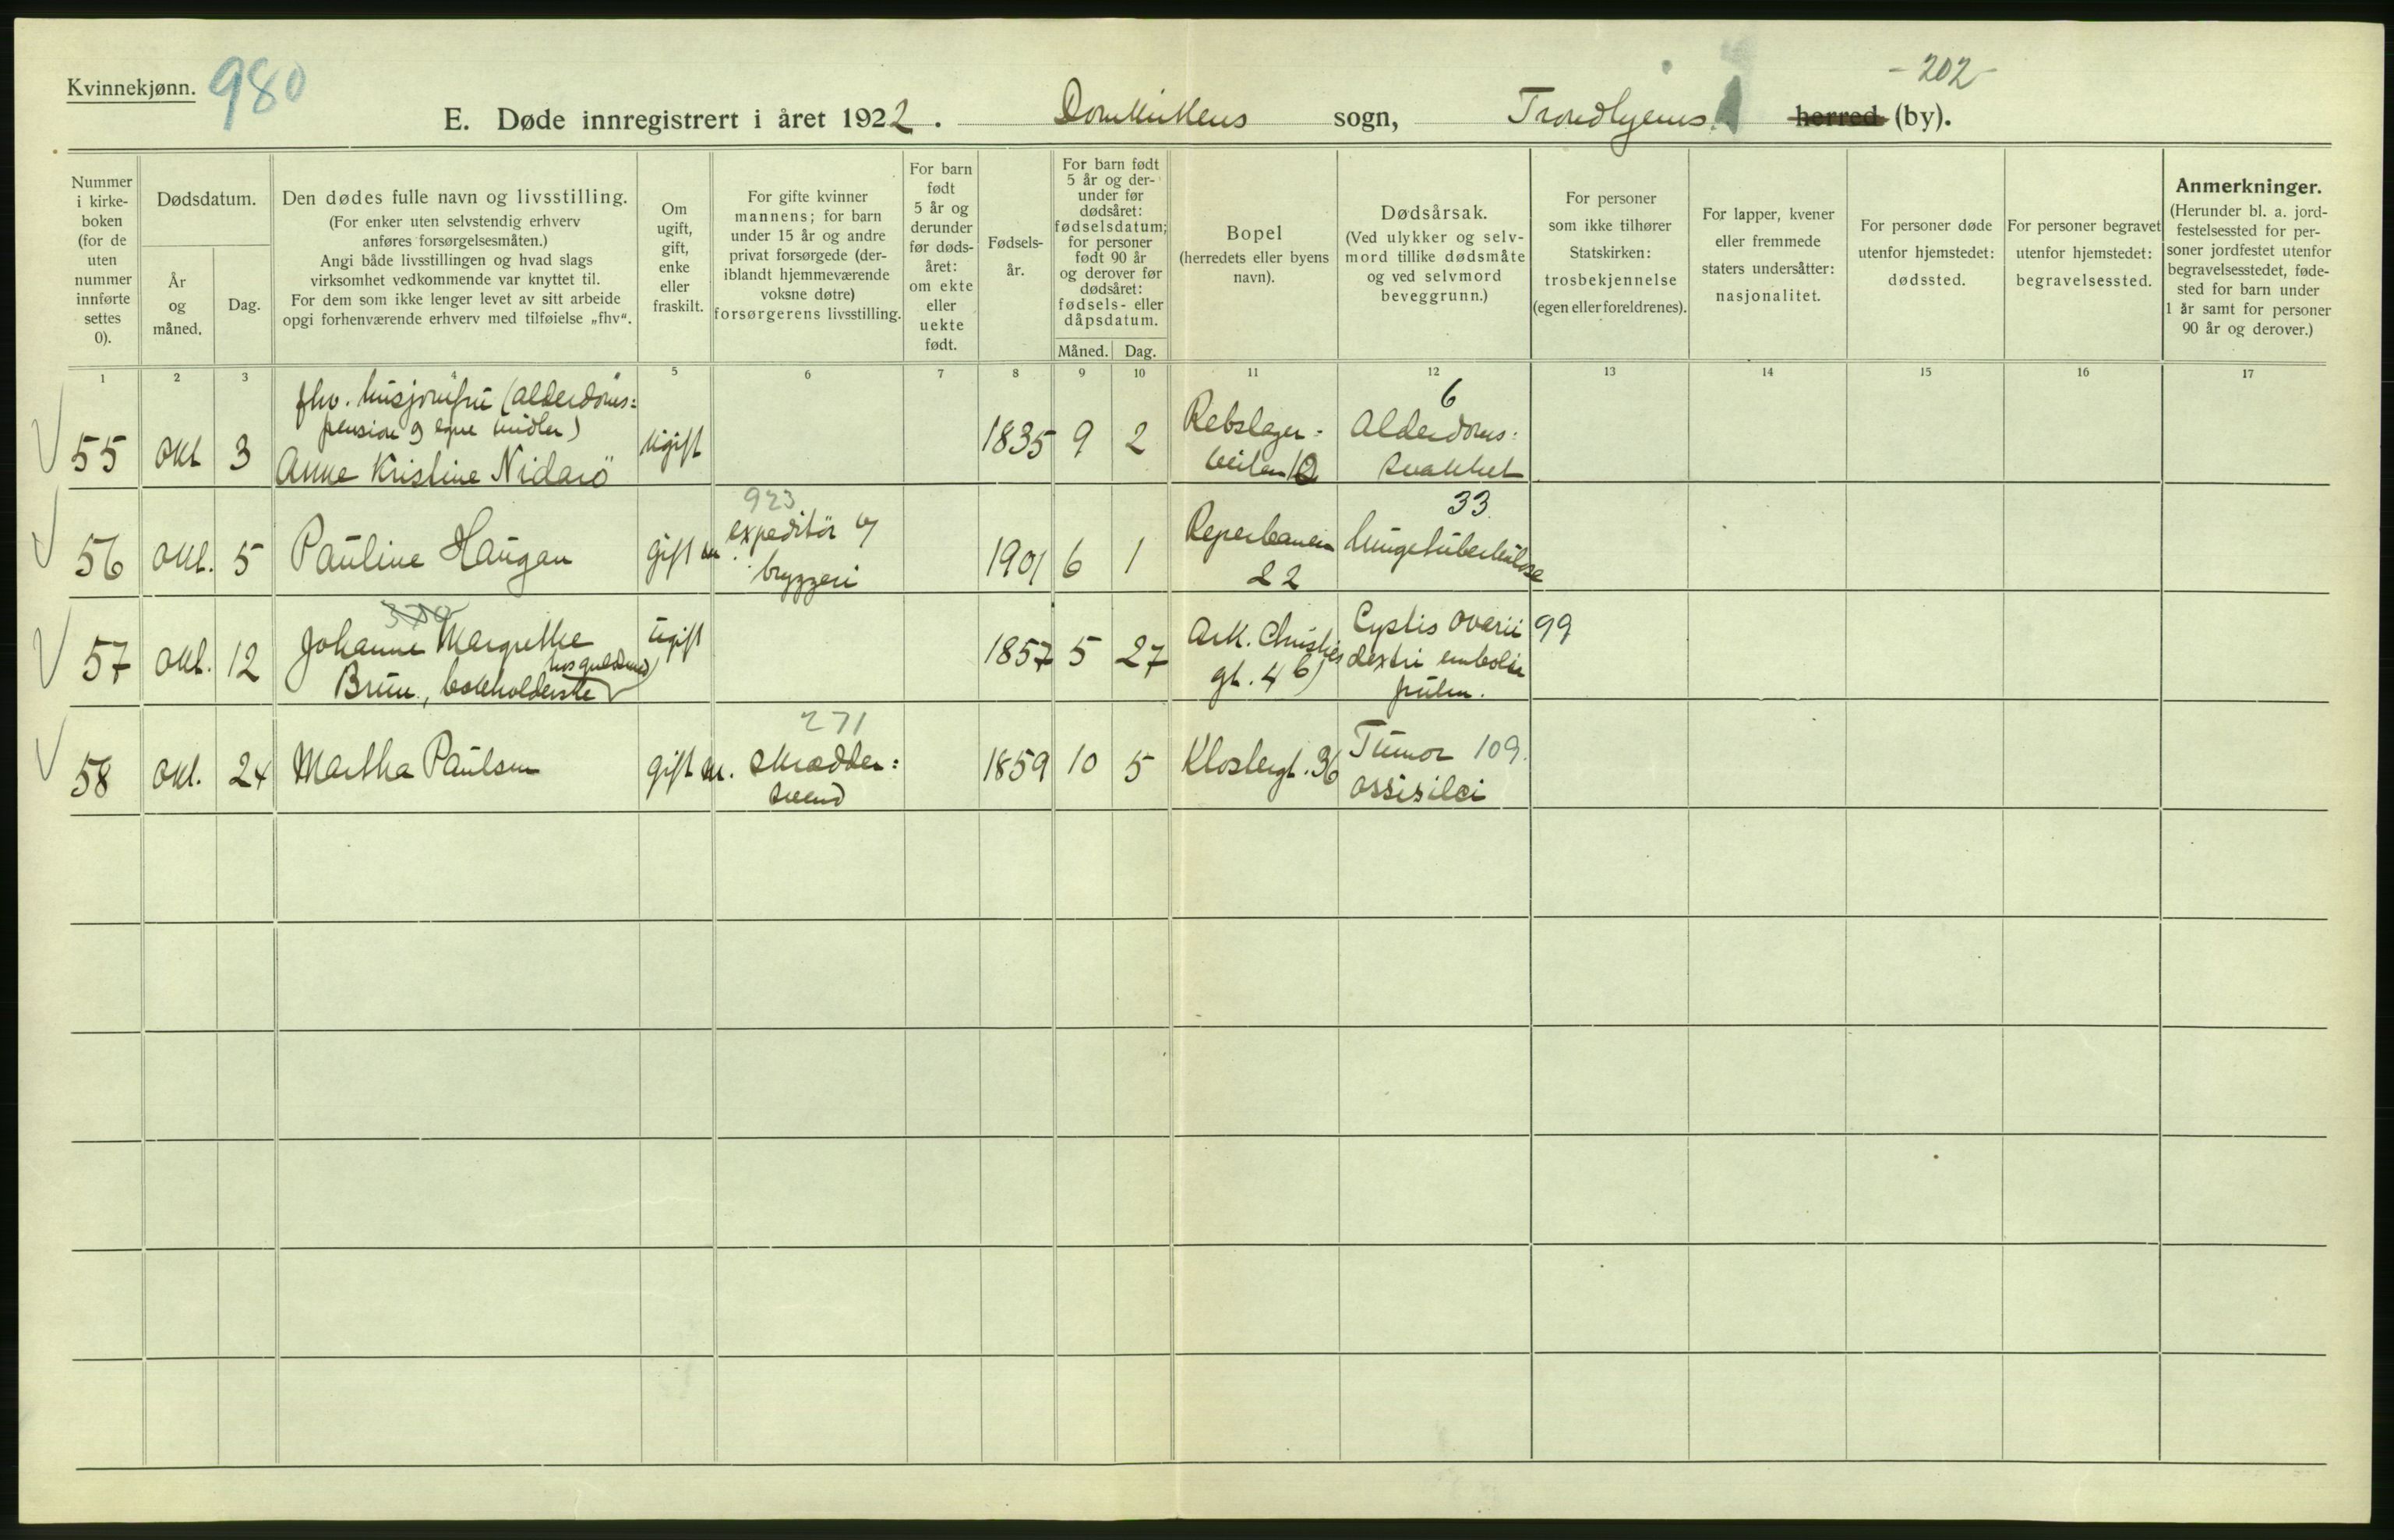 Kvinnekjønn. 980
-202-
E. Døde innregistrert i året 1922. Domkirkens sogn, Trondhjems herred (by).
Nummer i kirke-boken (for de uten nummer innførte settes 0).
Dødsdatum.
År og måned.
Dag.
Den dødes fulle navn og livsstilling.
(For enker uten selvstendig erhverv
anføres forsørgelsesmåten.)
Angi både livsstillingen og hvad slags
virksomhet vedkommende var knyttet til.
For dem som ikke lenger levet av sitt arbeide
opgi forhenværende erhverv med tilføielse „fhv“.
Om ugift, gift, enke eller fraskilt.
For gifte kvinner
mannens; for barn
under 15 år og andre
privat forsørgede (der-
iblandt hjemmeværende
voksne døtre)
forsørgerens livsstilling.
For barn født 5 år og derunder før døds-året: om ekte eller uekte født.
Fødsels-år.
For barn født
5 år og der-
under før
dødsåret:
fødselsdatum;
for personer
født 90 år
og derover før
dødsåret:
fødsels- eller
dåpsdatum.
Måned. Dag.
Bopel
(herredets eller byens
navn).
Dødsårsak.
(Ved ulykker og selv-
mord tillike dødsmåte
og ved selvmord
beveggrunn.)
For personer
som ikke tilhører
Statskirken:
trosbekjennelse
(egen eller foreldrenes).
For lapper, kvener
eller fremmede
staters undersåtter:
nasjonalitet.
For personer døde
utenfor hjemstedet:
dødssted.
For personer begravet
utenfor hjemstedet:
begravelsessted.
Anmerkninger.
(Herunder bl. a. jord-
festelsessted for per-
soner jordfestet utenfor
begravelsesstedet, føde-
sted for barn under
1 år samt for personer
90 år og derover.)
1 2 3 4 5 6 7 8 9 10 11 12 13 14 15 16 17
fhv. husjomfru (alderdoms=
pension og egne midler)
55 Okt 3 Anne Kristine Nidarö ugift 1835 9 2 Rebslager=
veiten 12
6
Alderdoms=
svakhet
56 Okt. 5 Pauline Haugan gift m. 923
expeditör v/
bryggeri
1901 6 1 Reperbanen
22
33
lungetuberkulose
57 Okt. 12 Johanne Margrethe
Bruun, bokholderske
ugift 1857 5 27 Ark. Christies
gt. 4 b)
Cystis ovarii 99
dextri emboliæ
pulm.
58 Okt. 24 Martha Paulsen gift m. 271
skrædder=
svend
1859 10 5 Klostergt. 36 Tumor 109.
ossis ilei